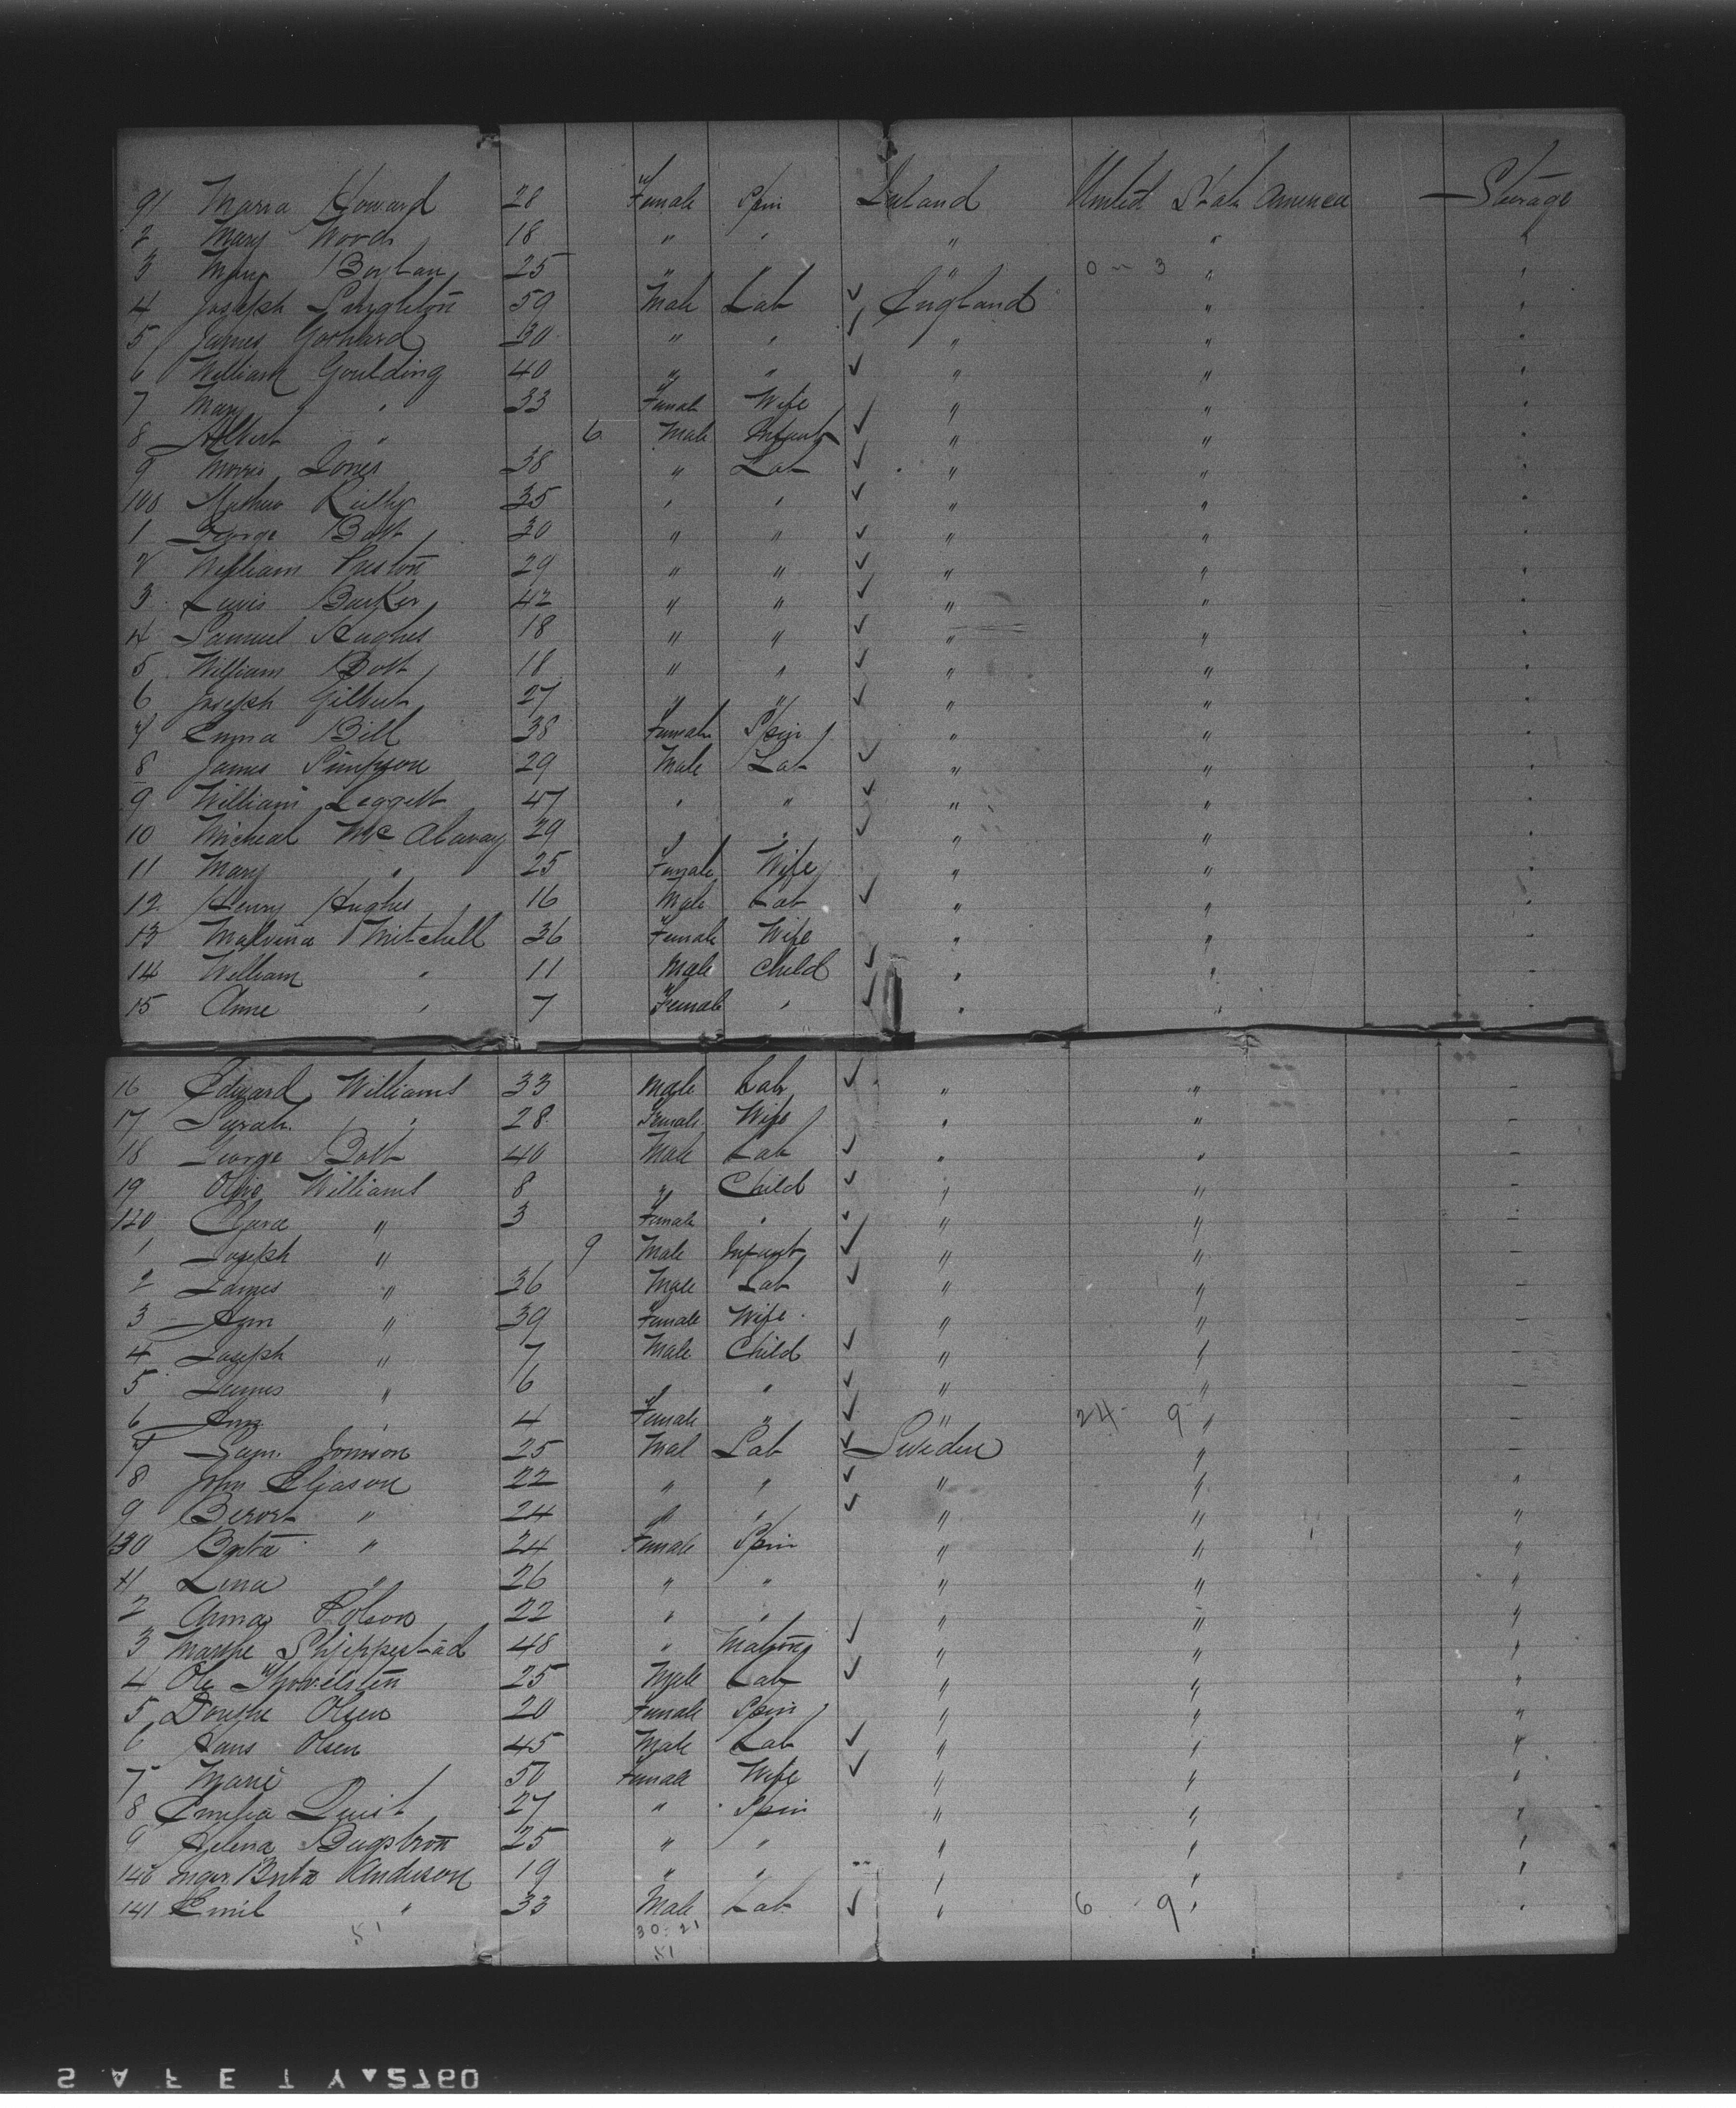 91 Maria Howard 28 Female Spin Ireland United State America Steerage
2 Mary Woods 18 " " " " "
3 Mary Boylan 25 " " " 0 - 3 " "
4 Joseph Singleton 59 Male Lab ✓ England " "
5 James Gothard 30 " " ✓ " " "
6 William Goulding 40 " " ✓ " " "
7 Mary " 33 Female Wife " " "
8 Albert " 6 Male Infant ✓ " " "
9 Morris Jones 38 " Lab ✓ " " "
100 Mathew Rielly 35 " " ✓ " " "
1 George Bott 30 " " ✓ " " "
2 William Preston 29 " " ✓ " " "
3 Lewis Barker 42 " " ✓ " " "
4 Samuel Hughes 18 " " ✓ " " "
5 William Bott 18 " " ✓ " " "
6 Joseph Gilbert 27 " " ✓ " " "
7 Emma Bill 38 Female Spin " " "
8 James Simpson 29 Male Lab ✓ " " "
9 William Leggett 47 " " ✓ " " "
10 Micheal 29 " " ✓ " " "
11 Mary " 25 Female Wife " " "
12 Henry Hughes 16 Male Lab ✓ " " "
13 Malvina Mitchell 36 Female Wife " " "
14 William " 11 Male Child ✓ " " -
15 Anne " 7 Female " ✓ " " -
16 Edward Williams 33 Male Lab ✓ " " -
17 Sarah " 28 Female Wife " " -
18 George Bott 40 Male Lab ✓ " " -
19 Williams 8 " Child ✓ " " -
120 Clara " 3 Female " ✓ " " -
1 Joseph " 9 Male Infant ✓ " " -
2 James " 36 Male Lab ✓ " " -
3 Ann " 39 Female Wife " " -
4 Joseph " 7 Male Child ✓ " " -
5 James " 6 " " ✓ " " -
6 Ann " 4 Female " ✓ " 24 - 9 " -
7 Sam. Jonsson 25 Mal Lab ✓ Sweden " -
8 John Eliason 22 " " ✓ " " "
9 " 24 " " ✓ " " "
130 Brita " 24 Female Spin " " "
1 Lena " 26 " " " " "
2 Anna Polson 22 " " " " "
3 48 " Matron ✓ " " "
4 Ole 25 Male Lab ✓ " " "
5 Olsen 20 Female Spin " " "
6 Hans Olsen 45 Male Lab ✓ " " "
7 Marie 50 Female Wife ✓ " " "
8 Emelia Quist 27 " Spin " " "
9 Helena 25 " " " " "
140 Inger Brita Anderson 19 " " " " "
141 Emil " 33 Male Lab ✓ " 6 - 9 " "
51 30-21
51
SAFETY▲2760